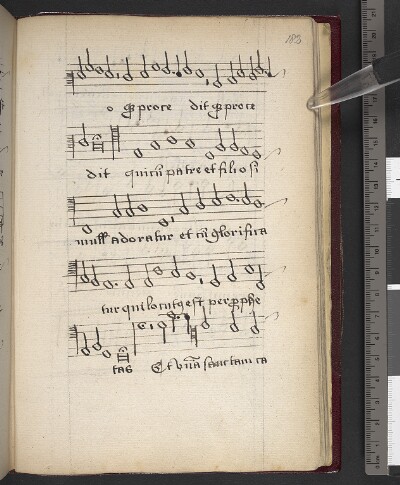 183
o q̄ proce dit q̄ proce
dit qui cū patre et filio si
mull adoratur et cū glorifica
tur qui locutq est per p̄phe
tas Et vnā sanctam ca